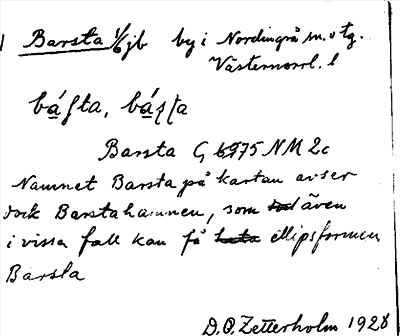 Barsta 1/6 jb by i Nordingrå sn. o tg.
Västernorrl. l
bá̱ſta, bá̱ʂʂta
Barsta G 6975 NM 2c
Namnet Barsta på kartan avser
dock Barstahamnen, som även
i vissa fall kan få ellipsformen
Barsta
D.O. Zetterholm 1928